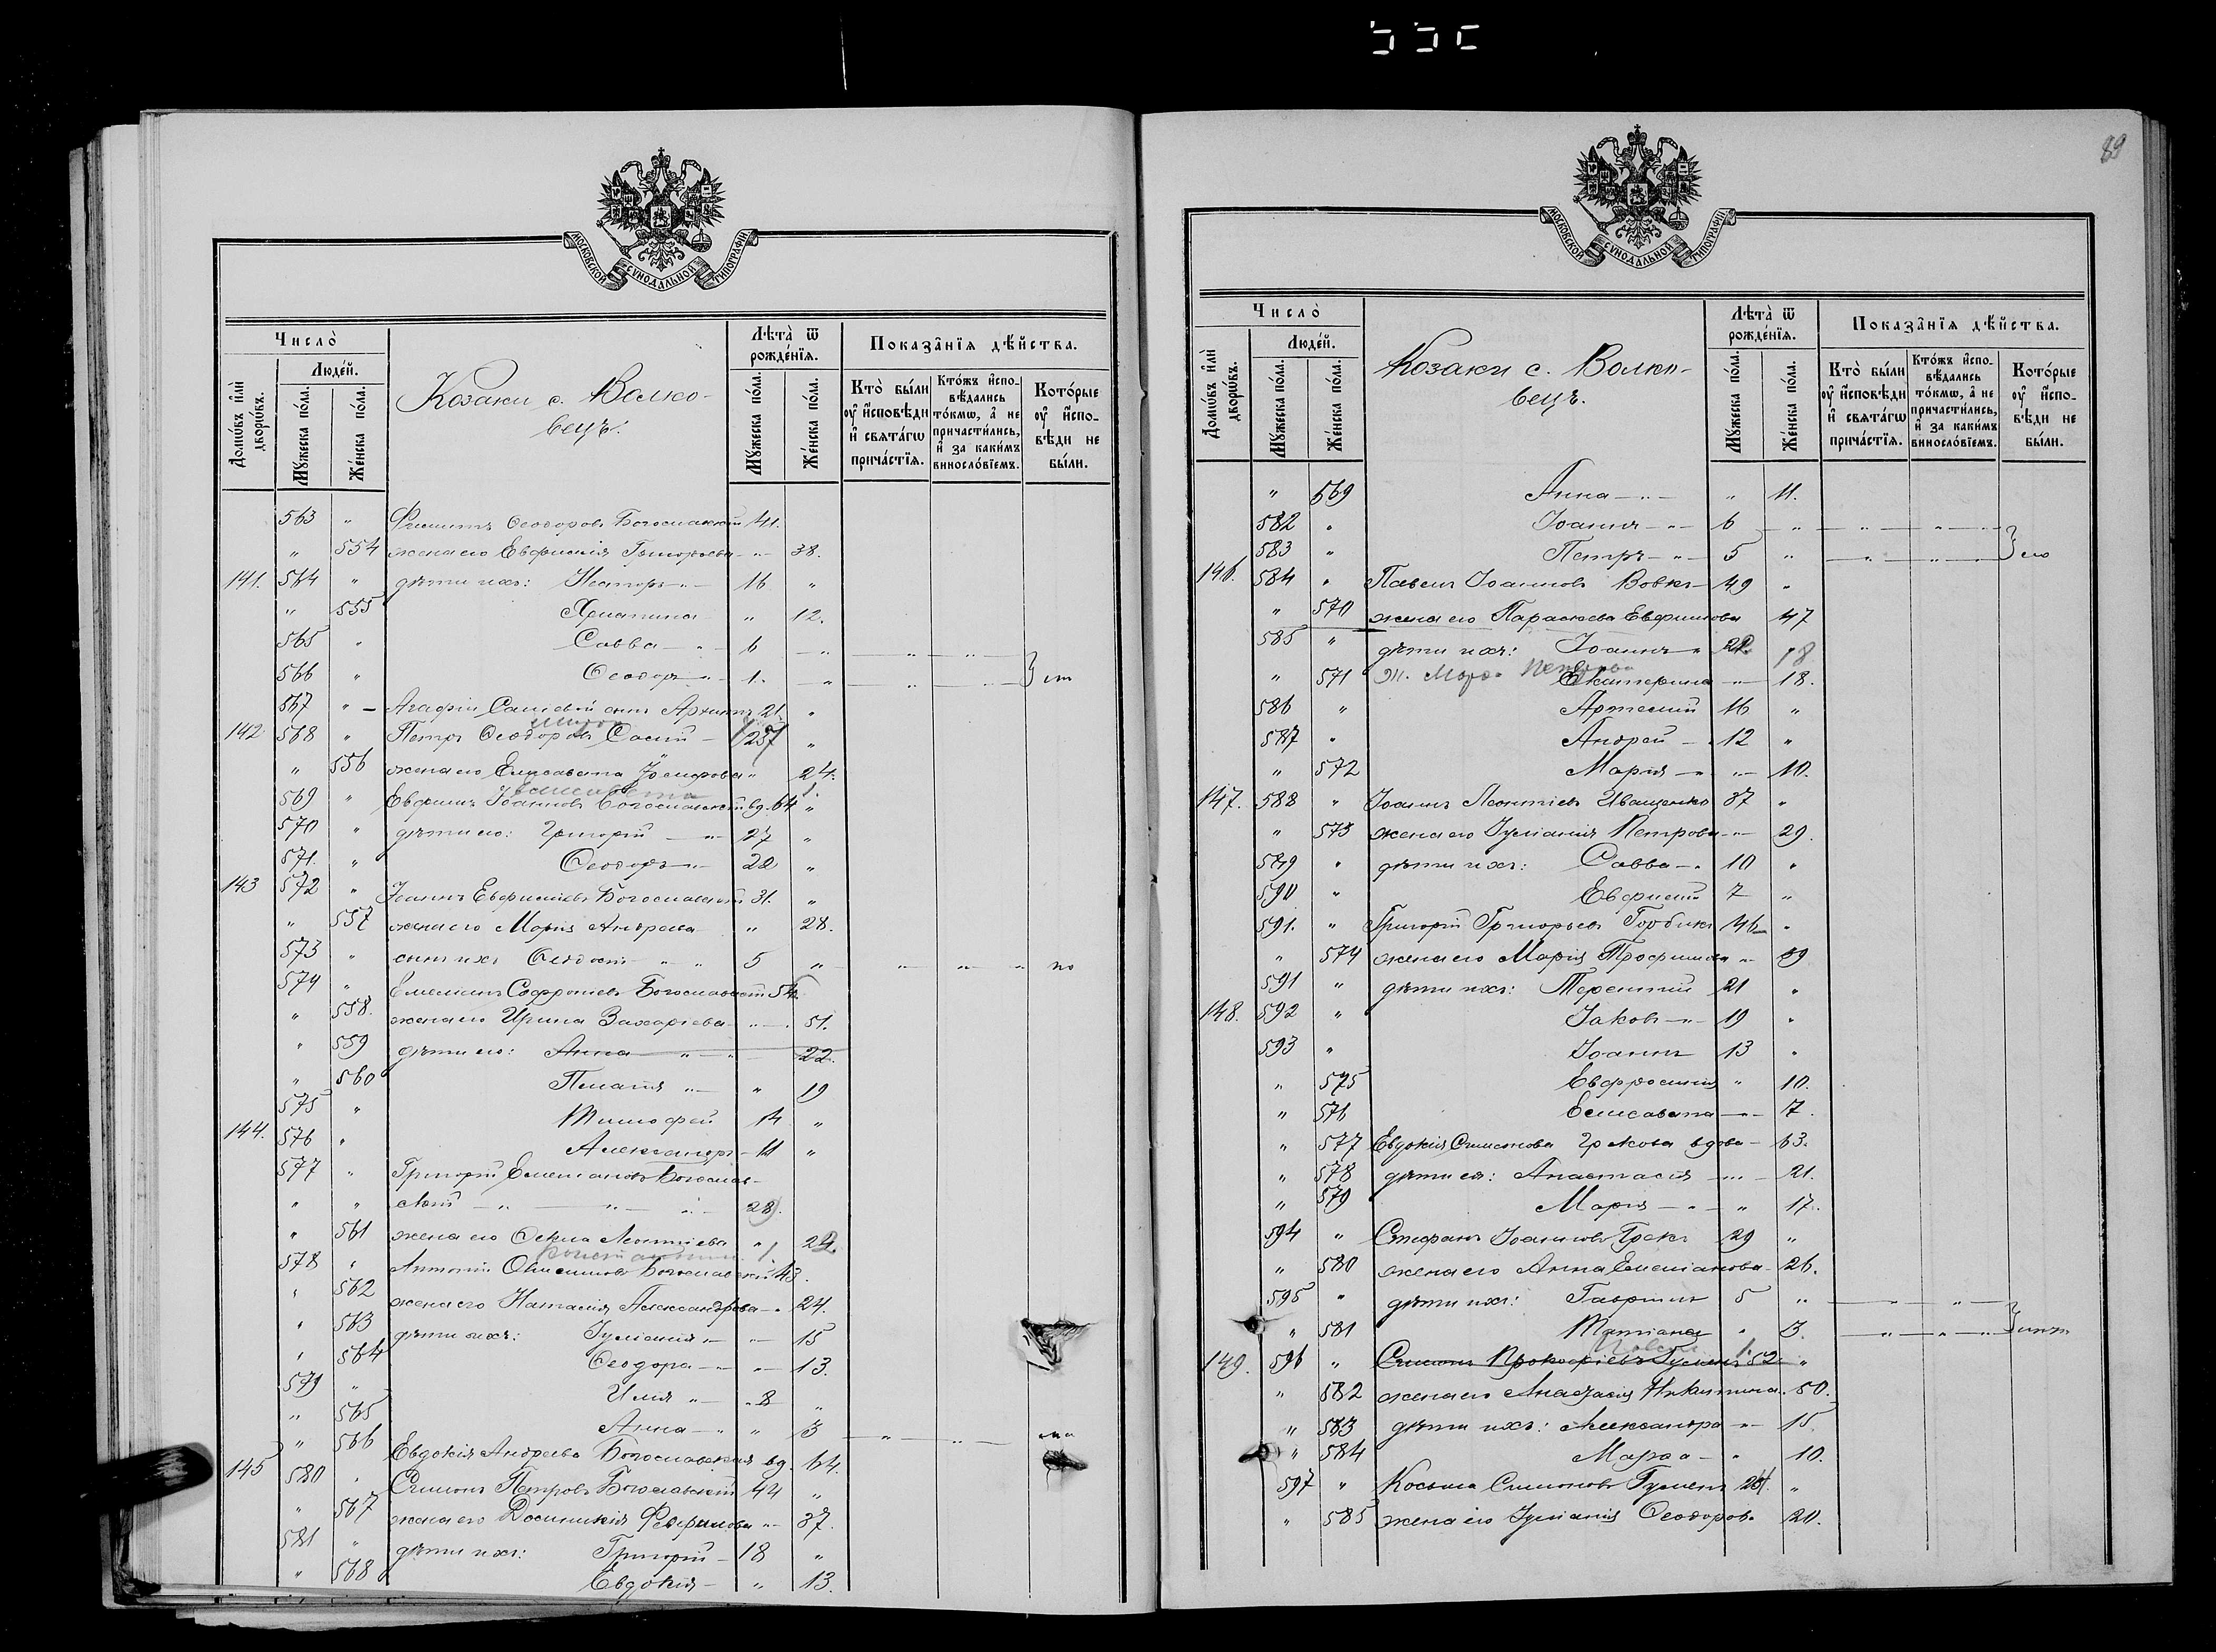 89
МОСКОВСКОЙ СѴНОДАЛЬНОЙ ТИПОГРАФІИ
Число̀
Людéй.
Домѡ́въ и҆лѝ дворѡ́въ.
Мꙋ́жеска по́ла.
Же́нска по́ла.
Козаки с. Волко-
вецъ.
Лѣ́та ѿ рожде́нїѧ.
Мꙋ́жеска по́ла.
Же́нска по́ла.
Показа̂нїѧ дѣ́йства.
Кто̀ бы́ли оу҆ и҆сповѣ́ди и҆ свѧта́гѡ прича́стїѧ.
Кто́жъ и҆спо-вѣ́дались то́кмѡ, а҆ не причасти́лись, и҆ за каки́мъ винослóвїемъ.
Кото́рые оу҆ и҆спо-вѣ́ди не бы́ли.
563 " Филиппъ Ѳеодоровъ Богославскій 41.
" 554 жена его Евфимія Григорьева " 38.
141. 564 " дѣти ихъ: Несторъ " 16 "
" 555 " 12.
565 " Савва " 6 " " "
566 " Ѳеодоръ " 1. " " "
567 " Агафій 21. "
142 568 " Петръ Ѳеодоровъ " "
" 556 жена его Елисавета " 24.
569 " Евфимъ Іоанновъ Богославскій вд. 64 "
570 " дѣти его: Григорій " 27 "
571. " Ѳеодоръ " 22 "
143 572 " Іоаннъ Евфиміевъ Богославскій 31. "
" 557 жена его Марія Андреева " 28.
573 " сынъ ихъ Ѳеодосій " " 5 " " " "
574 " Емеліанъ Софроніевъ Богославскій 54.
" 558. жена его Ирина Захаріева " 51.
" 559 дѣти его: Анна " " 22.
" 560 Пелагія " " 19
575 " Тимофей 14 "
144. 576 " Александръ 11 "
577 " Григорій Емеліановъ Богослав-
" " скій " " " 28.
" 561 жена его Ѳекла Леонтіева " 22.
578 " Антоній Богославскій 43.
" 562 жена его Наталія Александрова " 24.
" 563 дѣти ихъ: Іуліанія " " 15
" 564 Ѳеодора " " 13.
579 " Илія " 8 "
" 565 Анна " " 3 " "
" 566 Евдокія Андреева Богославская вд. 64.
145 580 " Симонъ Петровъ Богославскій 44 "
" 567 жена его Доминикія " 37.
581 " дѣти ихъ: Григорій 18 "
" 568 Евдокія " 13.
МОСКОВСКОЙ СѴНОДАЛЬНОЙ ТИПОГРАФІИ
Число̀
Людéй.
Домѡ́въ и҆лѝ дворѡ́въ.
Мꙋ́жеска по́ла.
Же́нска по́ла.
Козаки с. Волко-
вецъ.
Лѣ́та ѿ рожде́нїѧ.
Мꙋ́жеска по́ла.
Же́нска по́ла.
Показа̂нїѧ дѣ́йства.
Кто̀ бы́ли оу҆ и҆сповѣ́ди и҆ свѧта́гѡ прича́стїѧ.
Кто́жъ и҆спо-вѣ́дались то́кмѡ, а҆ не причасти́лись, и҆ за каки́мъ винослóвїемъ.
Кото́рые оу҆ и҆спо-вѣ́ди не бы́ли.
" 569 Анна " " 11.
582 " Іоаннъ " 6 " " "
583 " Петръ " 5 " " "
146. 584 " Павелъ Іоанновъ Вовкъ 49 "
" 570 жена его Параскева Евфимова 47
585 " дѣти ихъ: Іоаннъ " 18
" 571 Екатерина " 18.
586 " Артемій 16 "
587 " Андрей 12 "
" 572 Марія " " 10.
147. 588 " Іоаннъ Леонтіевъ Иващенко 37 "
" 573 жена его Іуліанія Петрова " 29.
589 " дѣти ихъ: Савва " 10 "
590 " Евфимій 7 "
591. " Григорій Григорьевъ Горбикъ 46 "
" 574 жена его Марія Трофимова "
591 " дѣти ихъ: Терентій 21 "
148. 592 " Іаковъ " 19 "
593 " Іоаннъ 13 "
" 575 Евфросинія " 10.
" 576 Елисавета " 7.
" 577 Евдокія Симонова вдова 63.
" 578 дѣти ея: Анастасія " 21.
" 579 Марія " " 17.
594 " Стефанъ Іоанновъ Грекъ 29 "
" 580 жена его Анна Емеліанова 26.
595 " дѣти ихъ: Гавріилъ 5 " " "
" 581 Татіана " 3. " " "
149. 596 " Симонъ Прокофіевъ Гуменъ 52 "
" 582 жена его Анастасія Никитина 50.
" 583 дѣти ихъ: Александра " 15.
" 584 Марѳа " 10.
597 " Косьма Симоновъ Гуменъ "
" 585 жена его Іуліанія Ѳеодорова 20.